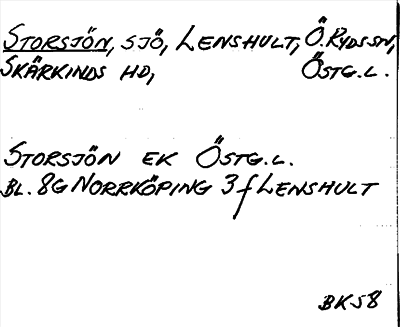 STORSJÖN, SJÖ, LENSHULT, Ö. RYDS SN,
SKÄRKINDS HD, ÖSTG.L.
STORSJÖN EK ÖSTG.L.
BL. 8G NORRKÖPING 3f LENSHULT
BK58